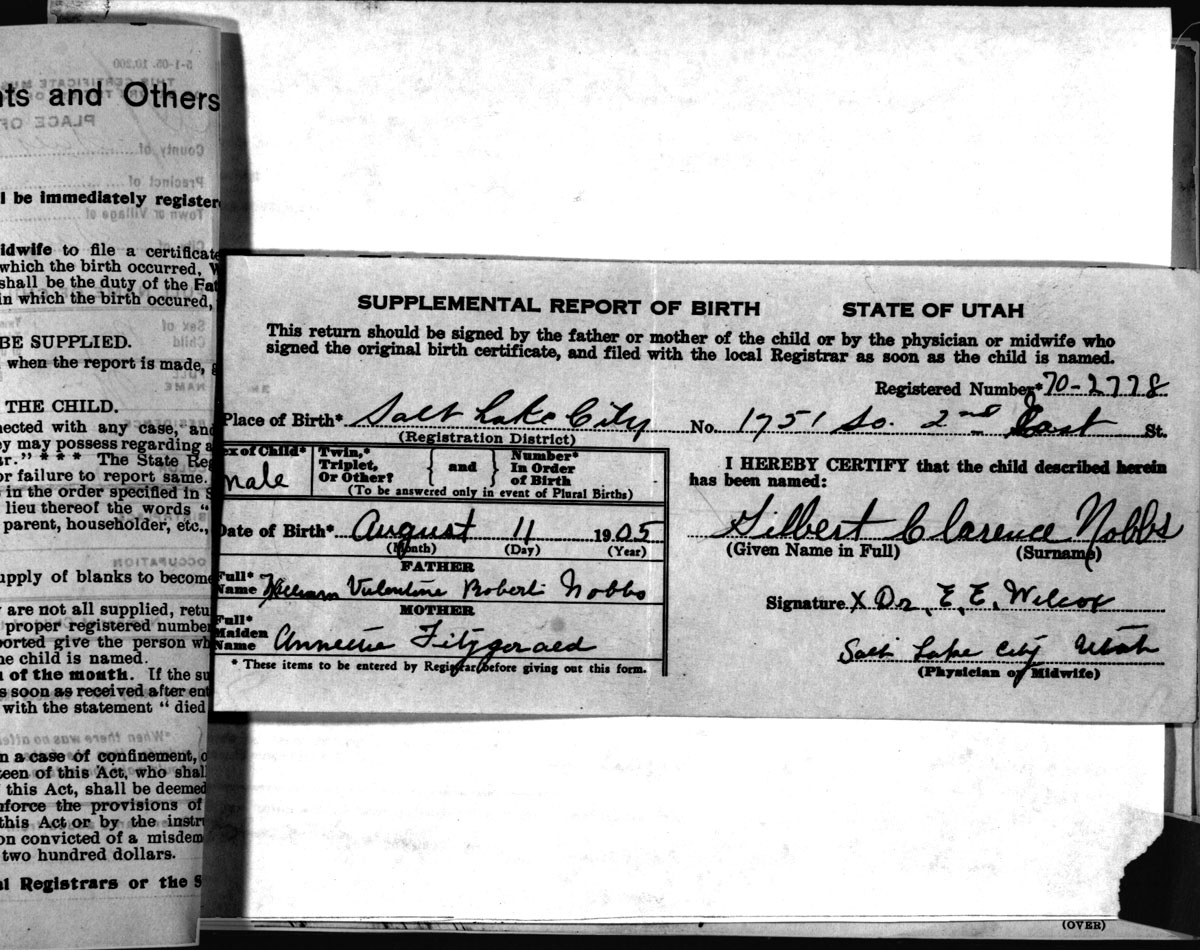 5-1-05. 10,200
THIS CERTIFICATE
nts and Others
PLACE OF
County of
Precinct of
l be immediately register
Town or Village of
idwife to file a certificate
which the birth occurred, W
shall be the duty of the Fat
in which the birth occured,
Sex of
Child
BE SUPPLIED.
when the report is made, g
NAME
THE CHILD.
nected with any case, and
ey may possess regarding a
ar." * * * The State Reg
or failure to report same.
s in the order specified in S
lieu thereof the words "
parent, householder, etc.,
OCCUPATION
upply of blanks to become
y are not all supplied, retu
proper registered number
ported give the person wh
he child is named.
h of the month. If the su
s soon as received after ent
with the statement " died
*When there was no
n a case of confinement, o
teen of this Act, who shall
this Act, shall be deemed
nforce the provisions of
this Act or by the instr
on convicted of a misdem
two hundred dollars.
al Registrars or the S
SUPPLEMENTAL REPORT OF BIRTH STATE OF UTAH
This return should be signed by the father or mother of the child or by the physician or midwife who
signed the original birth certificate, and filed with the local Registrar as soon as the child is named.
Registered Number* 70-2778
Place of Birth* Salt Lake City No. 1751 So. 2nd East St.
(Registration District)
Sex of Child* Twin,* Triplet, Or Other? { and } Number* In Order of Birth
male
(To be answered only in event of Plural Births)
Date of Birth* August 11 1905
(Month) (Day) (Year)
FATHER
Full* Name William Valentine Robert Nobbs
MOTHER
Full* Maiden Name Annettie Fitzgerald
* These items to be entered by Registrar before giving out this form.
I HEREBY CERTIFY that the child described herein
has been named:
Gilbert Clarence Nobbs
(Given Name in Full) (Surname)
Signature X Dr. E. E. Wilcox
Salt Lake City Utah
(Physician or Midwife)
(OVER)